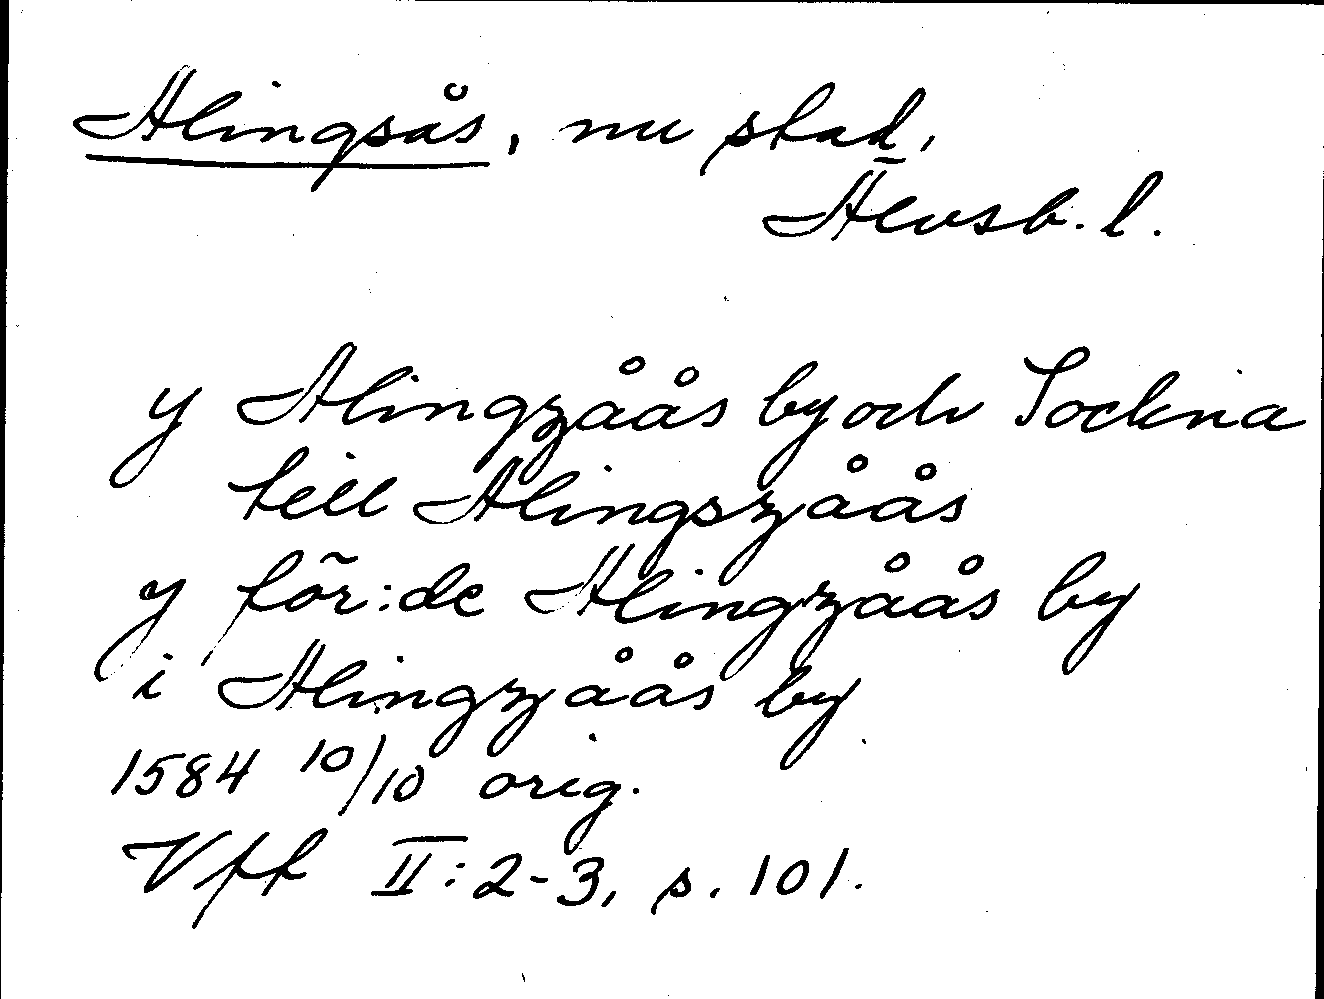 Alingsås, nu stad,
Älvsb. l.
y Alingzåås by och Sockna
till Alingszåås
y för:de Alingzåås by
i Alingzåås by
1584 10/10 orig.
Vft II:2-3, s. 101.